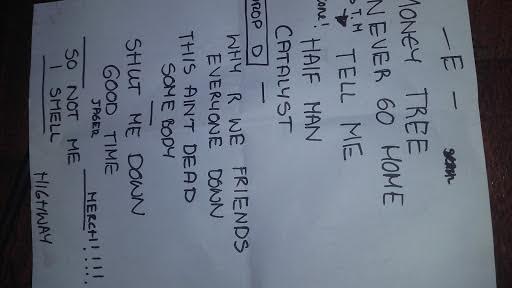 — E —
MONEY TREE
NEVER GO HOME
TELL ME
HALF MAN
CATALYST
DROP D
WHY R WE FRIENDS
EVERYONE DOWN
THIS AINT DEAD
SOMEBODY
SHUT ME DOWN
GOOD TIME
JAGER
MERCH!!!!
SO NOT ME
I SMELL
HIGHWAY